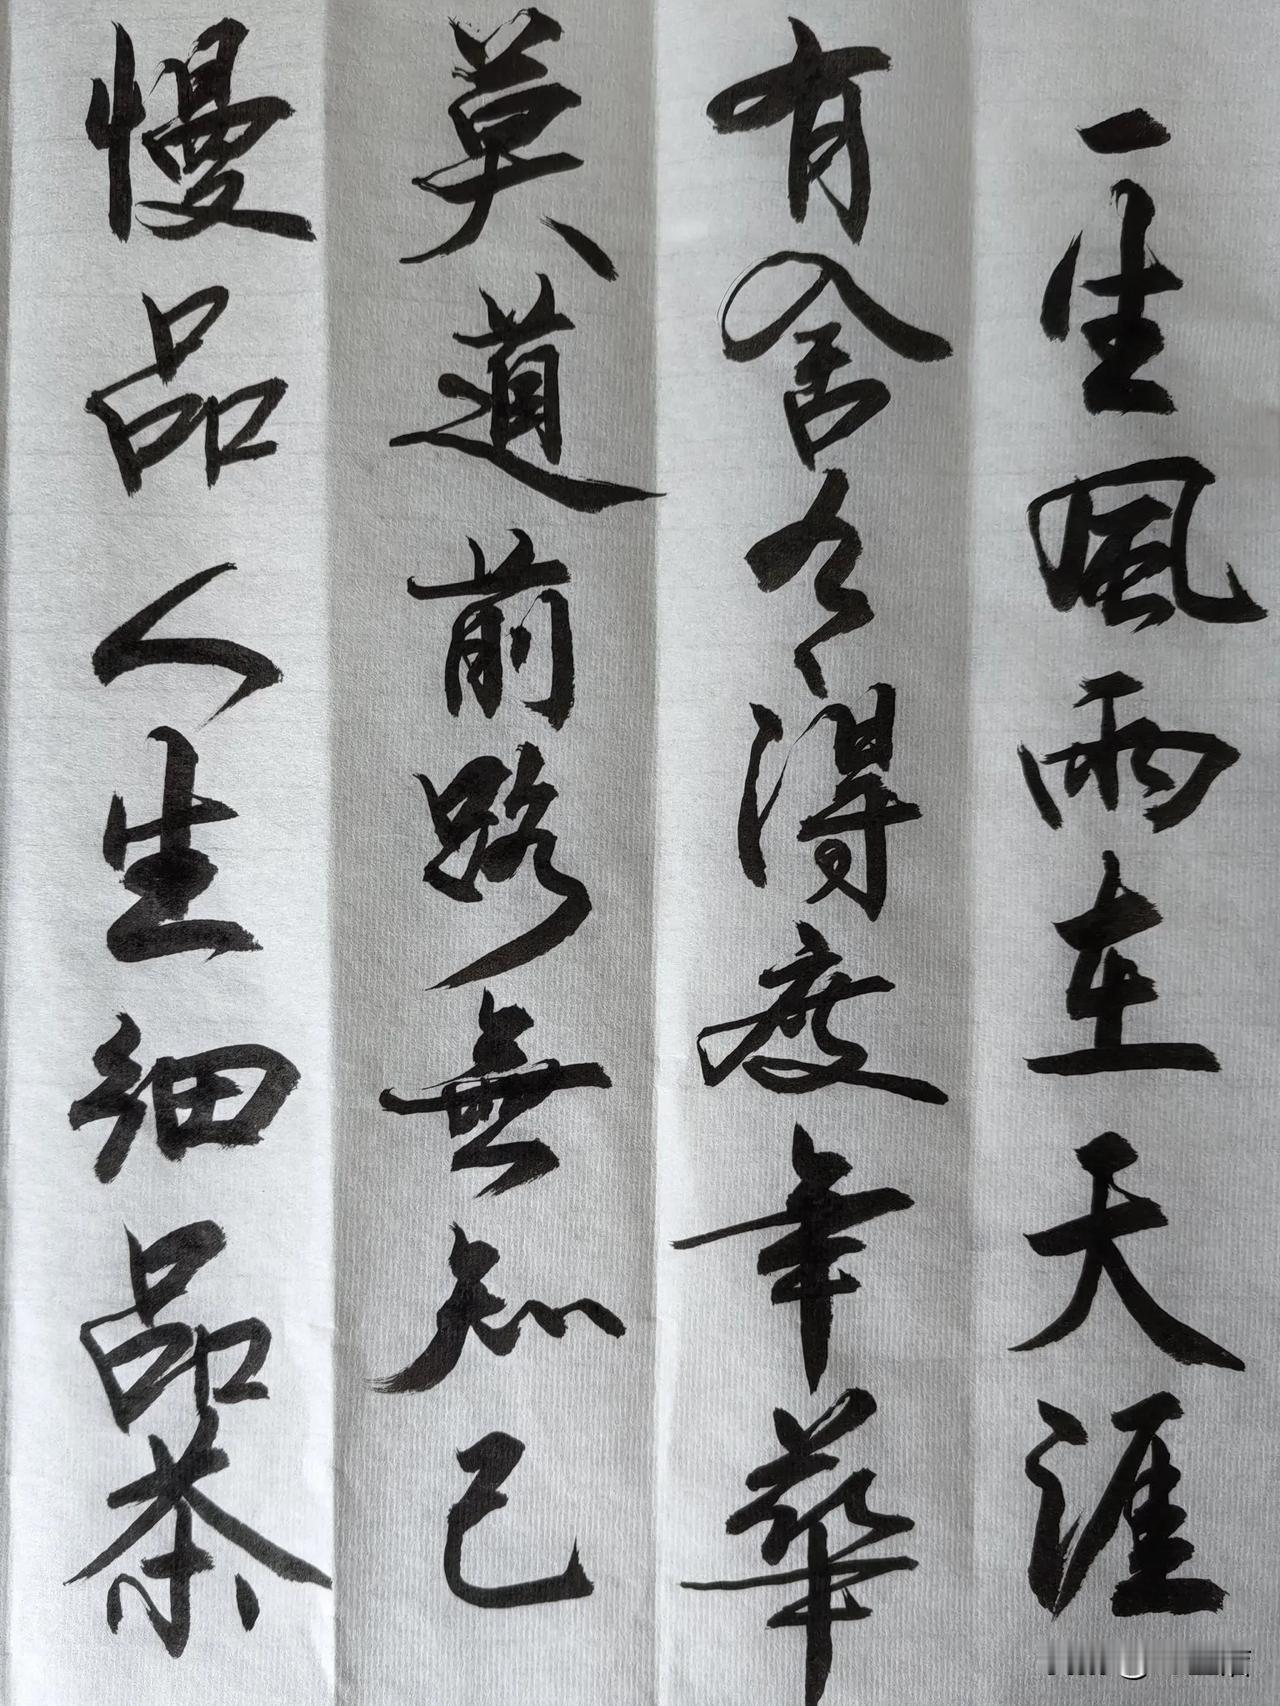 一生風雨在天涯
有舍有得度年華
莫道前路無知己
慢品人生細品茶